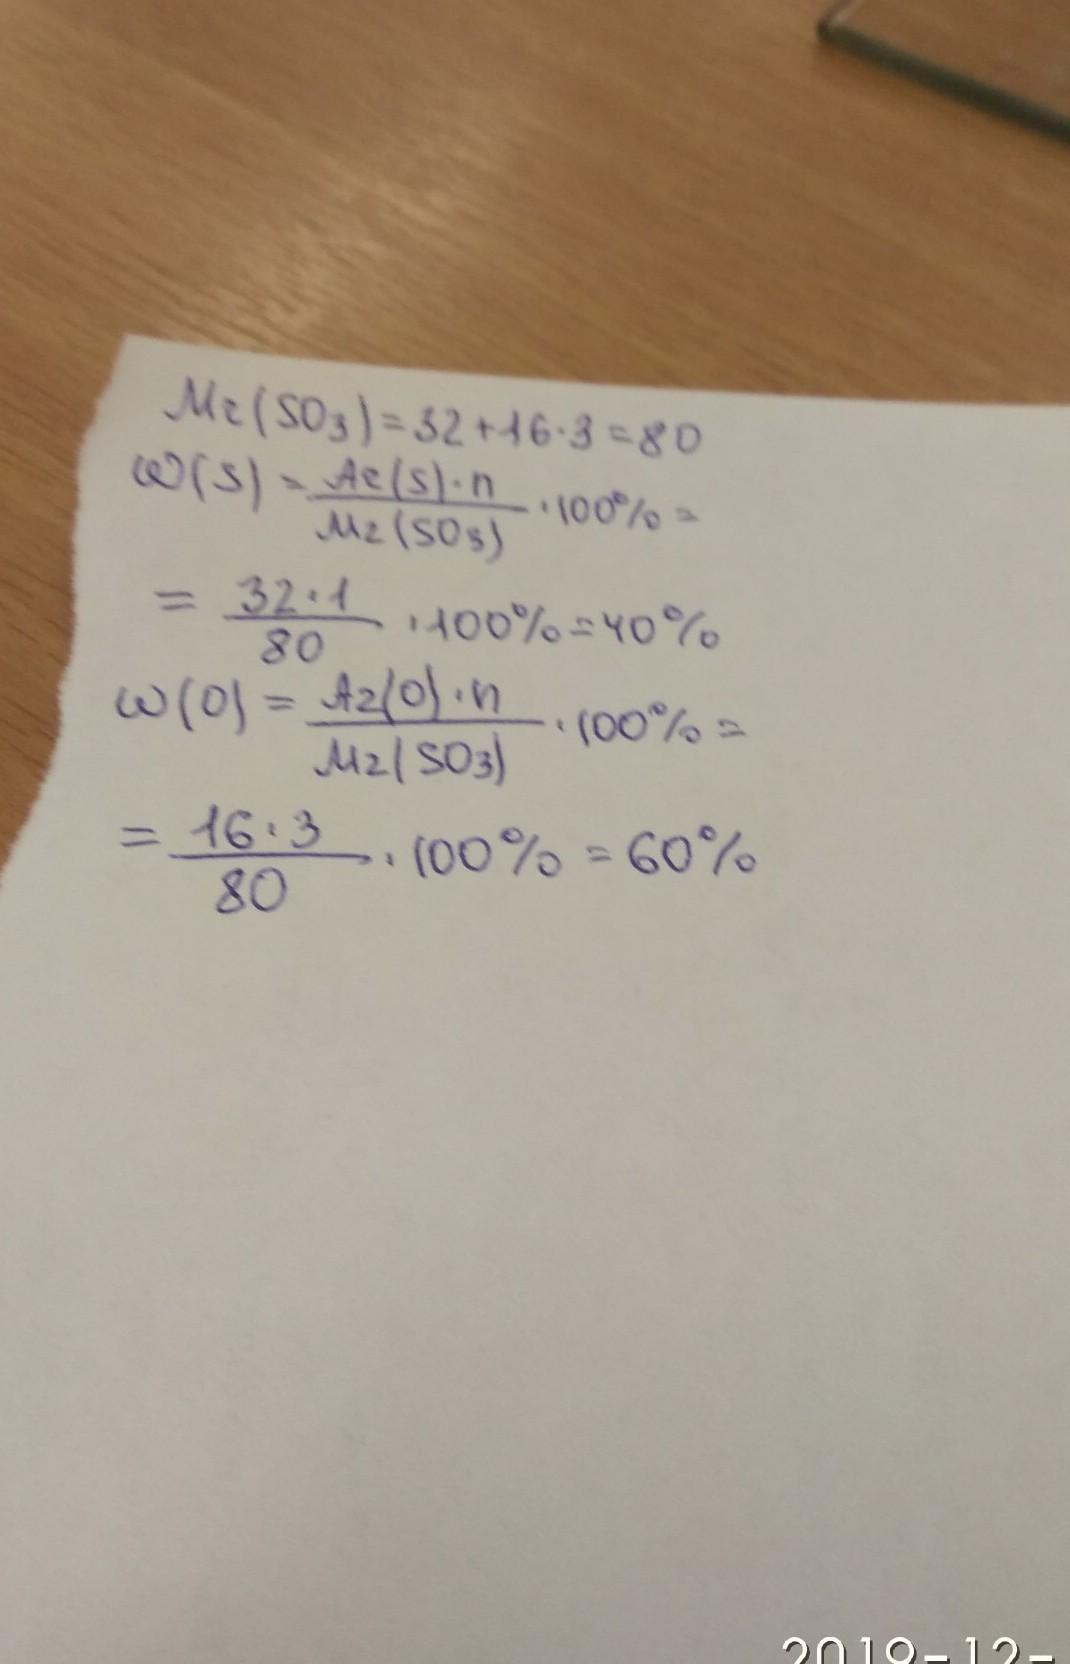 Mr(SO3)=32+16·3=80
ω(S) = Ar(S)·n / Mr(SO3) ·100% =
= 32·1 / 80 ·100%=40%
ω(O) = Ar(O)·n / Mr(SO3) ·100% =
= 16·3 / 80 ·100% = 60%
2019-12-